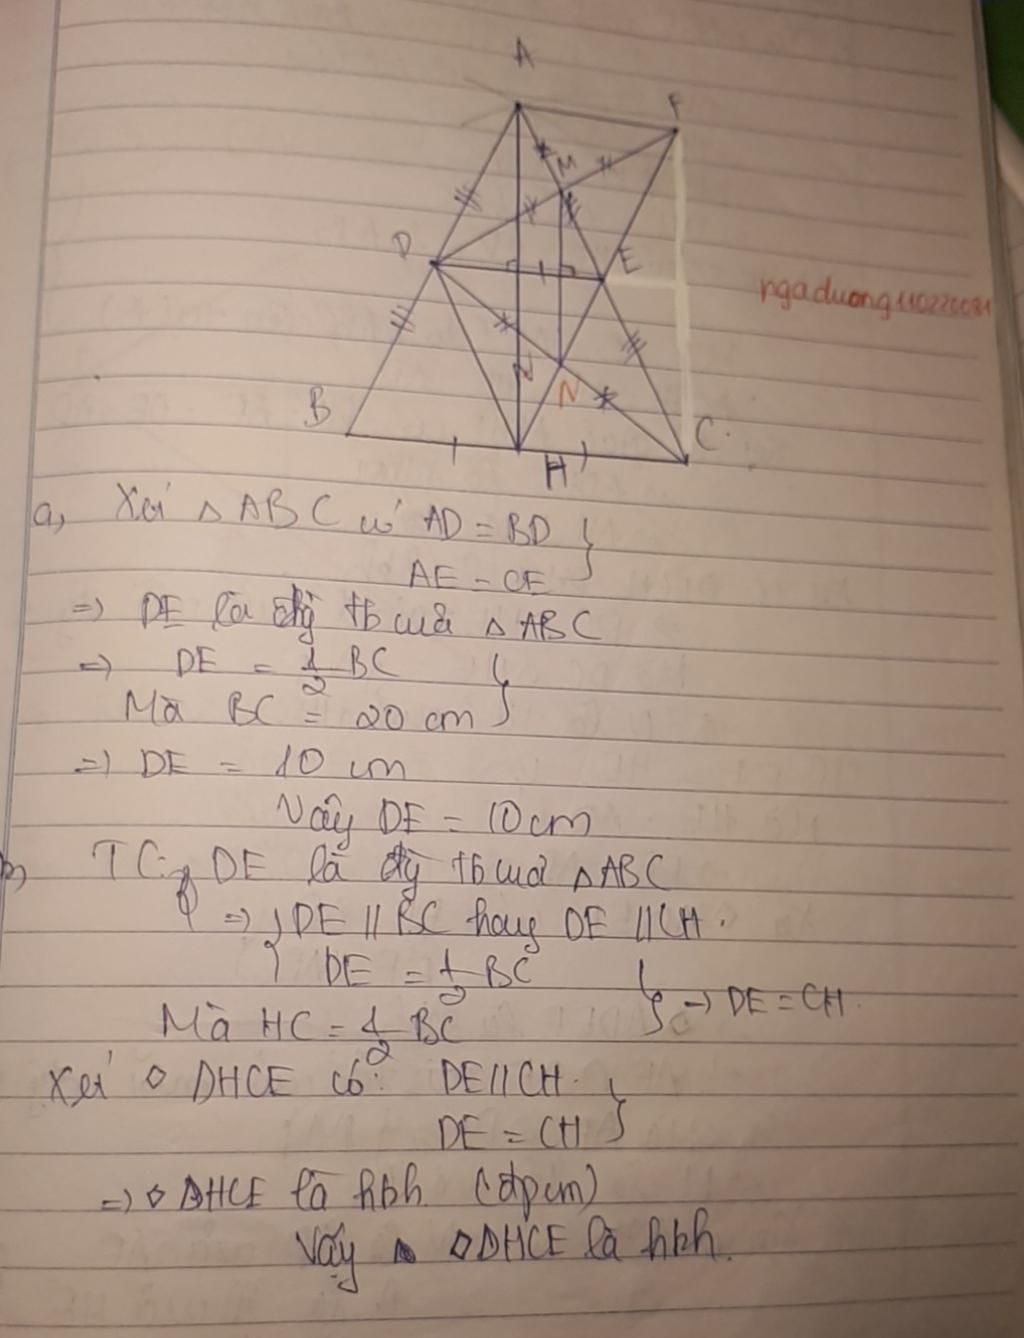 A
F
M
D
E
ngaduong110226081
N
B
C
H
a, Xét △ ABC có AD = BD
AE = CE
=> DE là đg tb của △ ABC
=> DE = 1/2 BC
Mà BC = 20 cm
=> DE = 10 cm
Vậy DE = 10cm
b, TC: DE là đg tb của △ABC
=> { DE // BC hay DE // CH.
DE = 1/2 BC
} => DE = CH.
Mà HC = 1/2 BC
Xét ◇ DHCE có: DE // CH.
DE = CH
=> ◇ DHCE là hbh (đpcm)
Vậy ◇DHCE là hbh.